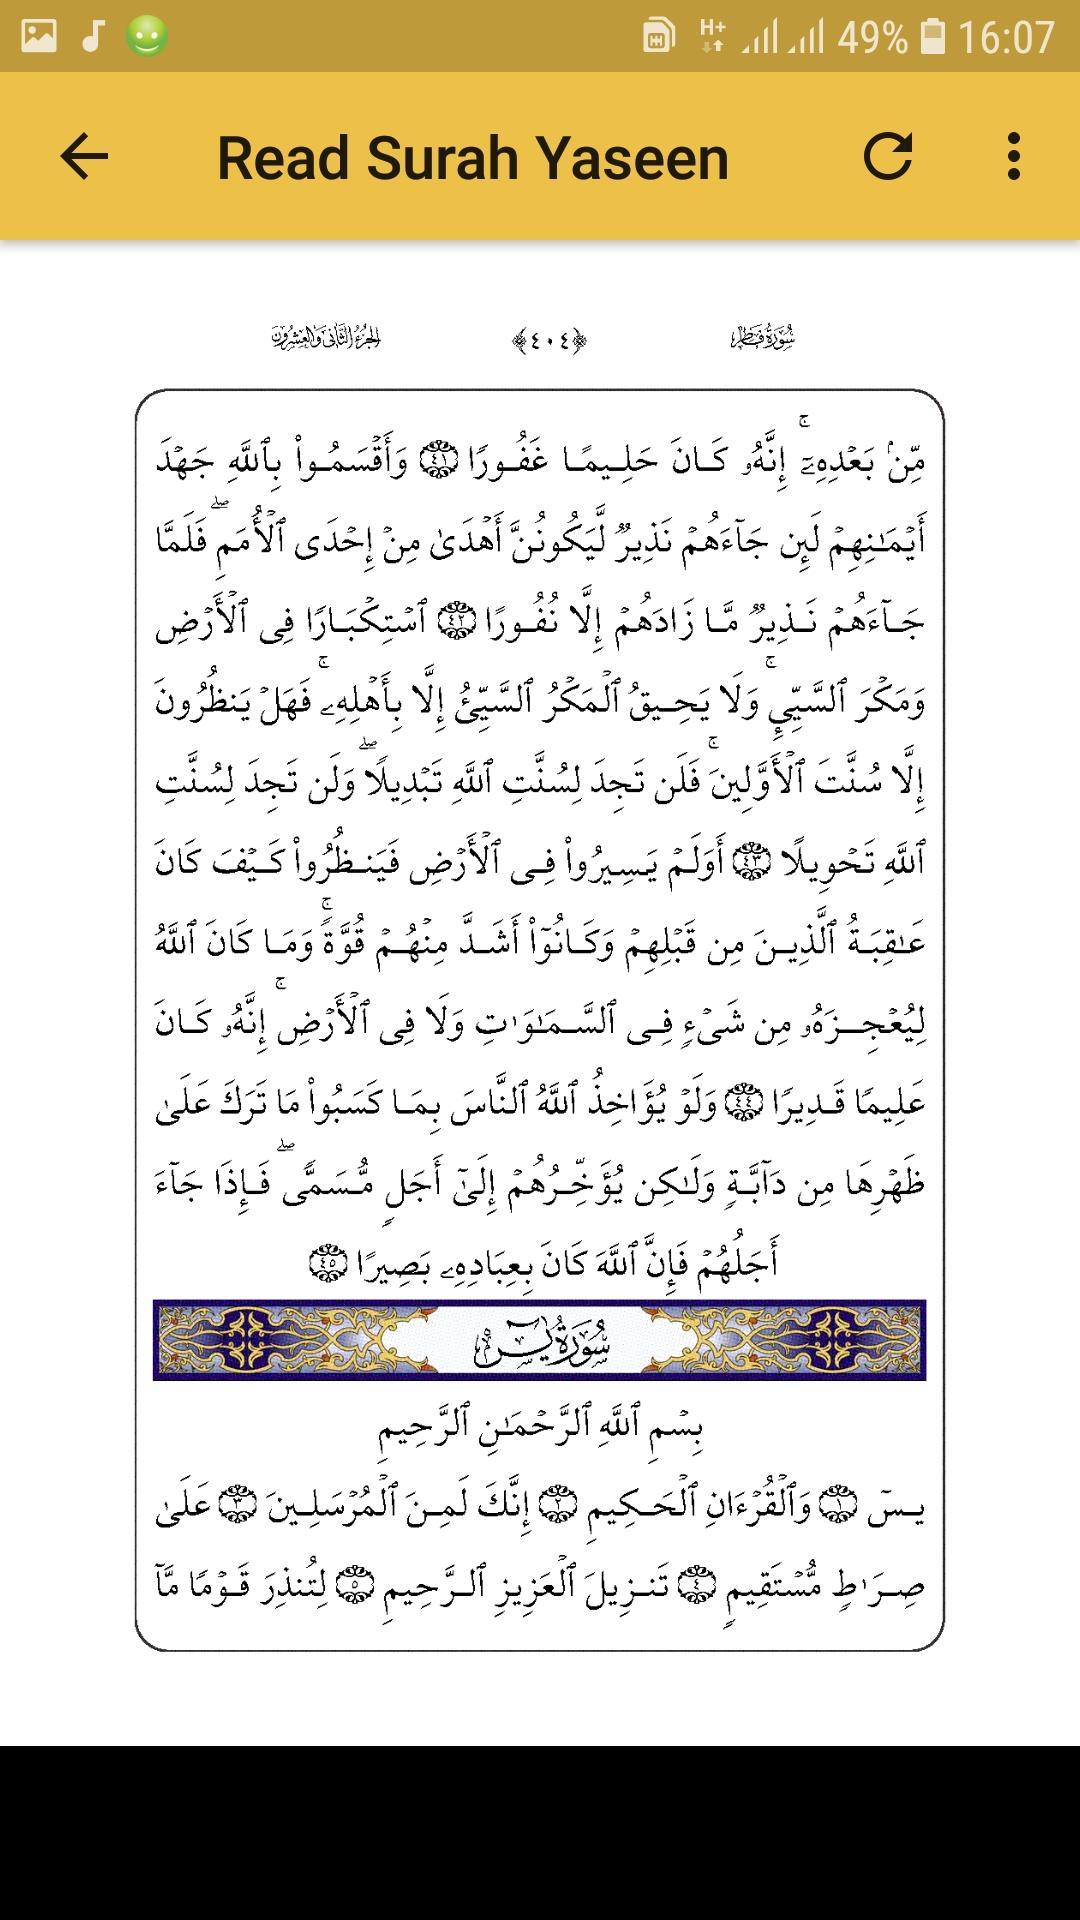 49% 16:07
Read Surah Yaseen
سُورَةُ فَاطِر ﴿٤٠٤﴾ الجُزءُ الثَّانِى وَالعِشرُونَ
مِّنۢ بَعۡدِهِۦٓۚ إِنَّهُۥ كَانَ حَلِيمًا غَفُورًا ٤١ وَأَقۡسَمُواْ بِٱللَّهِ جَهۡدَ
أَيۡمَٰنِهِمۡ لَئِن جَآءَهُمۡ نَذِيرٞ لَّيَكُونُنَّ أَهۡدَىٰ مِنۡ إِحۡدَى ٱلۡأُمَمِۖ فَلَمَّا
جَآءَهُمۡ نَذِيرٞ مَّا زَادَهُمۡ إِلَّا نُفُورًا ٤٢ ٱسۡتِكۡبَارًا فِى ٱلۡأَرۡضِ
وَمَكۡرَ ٱلسَّيِّيِٕۚ وَلَا يَحِيقُ ٱلۡمَكۡرُ ٱلسَّيِّئُ إِلَّا بِأَهۡلِهِۦۚ فَهَلۡ يَنظُرُونَ
إِلَّا سُنَّتَ ٱلۡأَوَّلِينَۚ فَلَن تَجِدَ لِسُنَّتِ ٱللَّهِ تَبۡدِيلًاۖ وَلَن تَجِدَ لِسُنَّتِ
ٱللَّهِ تَحۡوِيلًا ٤٣ أَوَلَمۡ يَسِيرُواْ فِى ٱلۡأَرۡضِ فَيَنظُرُواْ كَيۡفَ كَانَ
عَٰقِبَةُ ٱلَّذِينَ مِن قَبۡلِهِمۡ وَكَانُوٓاْ أَشَدَّ مِنۡهُمۡ قُوَّةٗۚ وَمَا كَانَ ٱللَّهُ
لِيُعۡجِزَهُۥ مِن شَىۡءٖ فِى ٱلسَّمَٰوَٰتِ وَلَا فِى ٱلۡأَرۡضِۚ إِنَّهُۥ كَانَ
عَلِيمًا قَدِيرًا ٤٤ وَلَوۡ يُؤَاخِذُ ٱللَّهُ ٱلنَّاسَ بِمَا كَسَبُواْ مَا تَرَكَ عَلَىٰ
ظَهۡرِهَا مِن دَآبَّةٖ وَلَٰكِن يُؤَخِّرُهُمۡ إِلَىٰٓ أَجَلٖ مُّسَمّٗىۖ فَإِذَا جَآءَ
أَجَلُهُمۡ فَإِنَّ ٱللَّهَ كَانَ بِعِبَادِهِۦ بَصِيرًا ٤٥
سُورَةُ يسٓ
بِسۡمِ ٱللَّهِ ٱلرَّحۡمَٰنِ ٱلرَّحِيمِ
يسٓ ١ وَٱلۡقُرۡءَانِ ٱلۡحَكِيمِ ٢ إِنَّكَ لَمِنَ ٱلۡمُرۡسَلِينَ ٣ عَلَىٰ
صِرَٰطٖ مُّسۡتَقِيمٖ ٤ تَنزِيلَ ٱلۡعَزِيزِ ٱلرَّحِيمِ ٥ لِتُنذِرَ قَوۡمٗا مَّآ